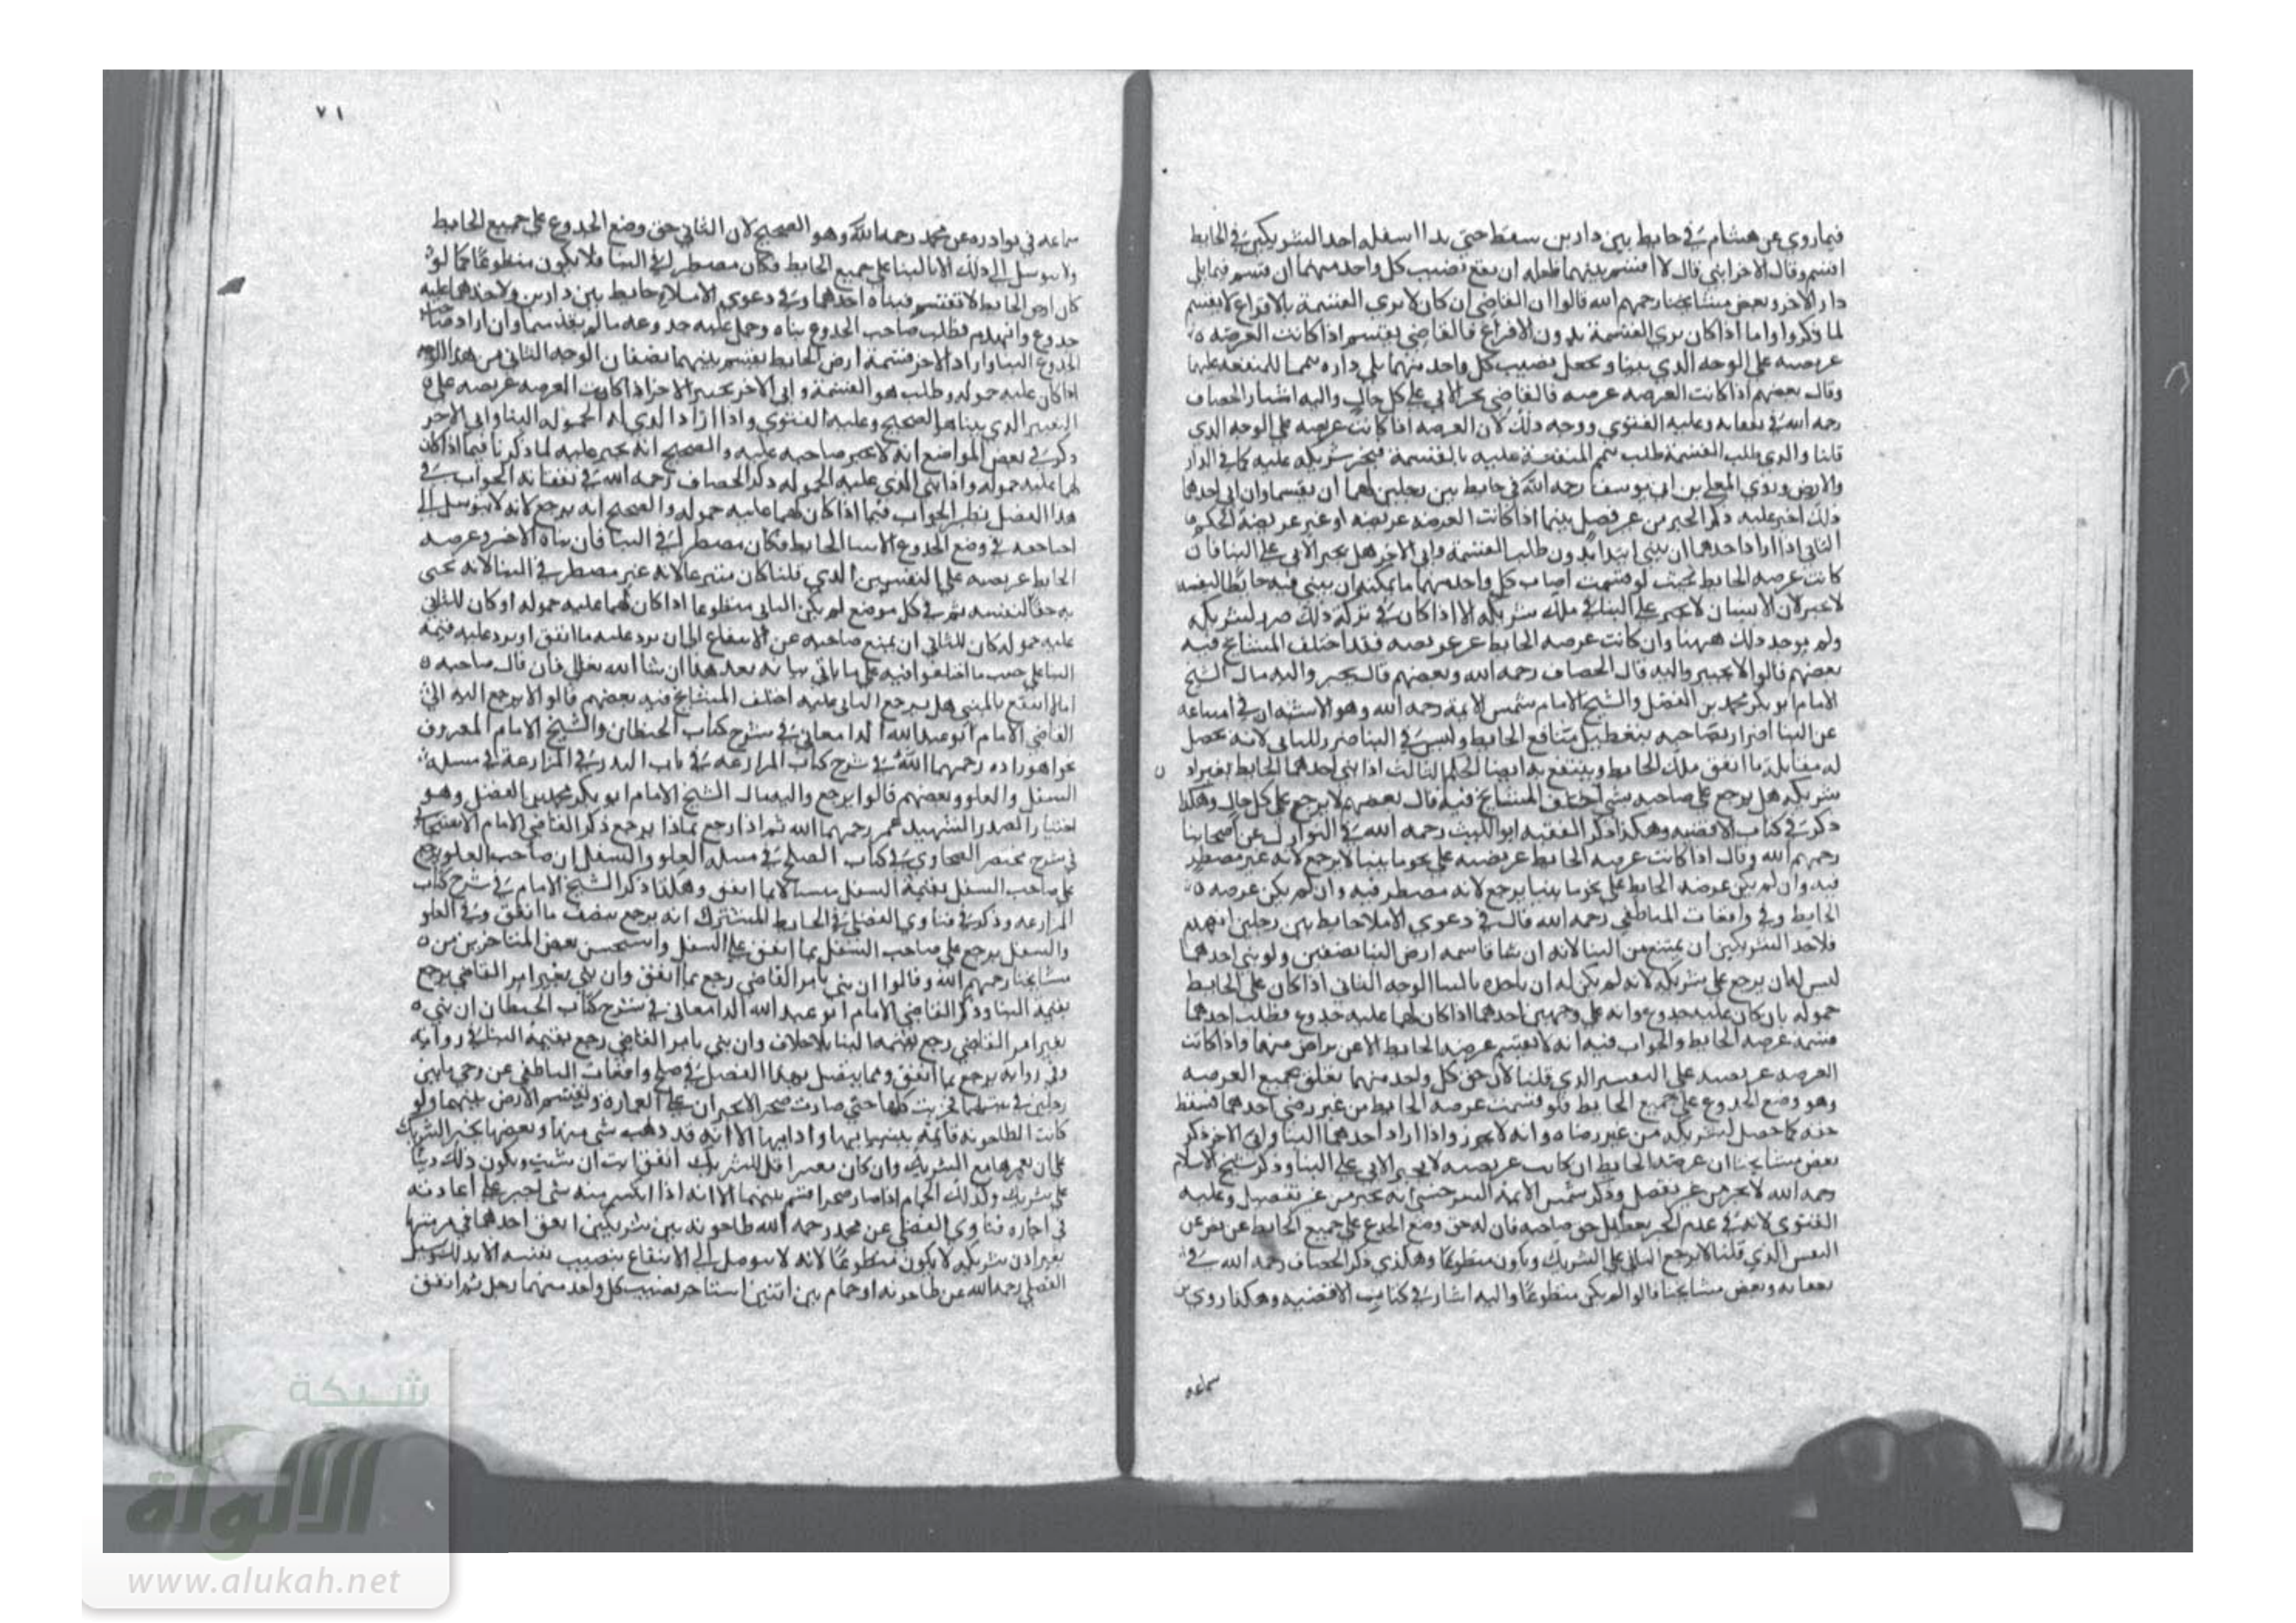 فيما روي عن هشام في حايط بين دارين سقط حتى بدا اسفله احد الشريكين في الحايط
اقتسم وقال الاخر ابني قال لا اقتسم بينهما فلعله ان يقع نصيب كل واحد منهما ان قسم فيما يلي
دار الاخر وبعض مشايخنا رحمهم الله قالوا ان القاضي ان كان لا يري القسمة بالاقراع لا يقسم
لما ذكروا واما اذا كان يري القسمة بدون الاقراع فالقاضي يقسم اذا كانت العرصه
عريضه على الوجه الذي بينا ويجعل نصيب كل واحد منهما يلي داره تتميما للمنفعه عليهما
وقال بعضهم اذا كانت العرصه عريضه فالقاضي يجبر الابي على كل حال واليه اشار الخصاف
رحمه الله في نفقاته وعليه الفتوي ووجه ذلك لان العرصه اذا كانت عريضه علي الوجه الذي
قلنا والذي طلب القسمة طلب تتميم المنفعة عليه بالقسمة فيجبر شريكه عليه كما في الدار
والارض وروي المعلي بن ابي يوسف رحمه الله في حايط بين رجلين لهما ان يقسما وان ابي احدهما
ذلك اجبر عليه ذكر الجبر من غير فصل بينما اذا كانت العرصه عريضه او غير عريضة الحكم
الثاني اذا اراد احدهما ان يبني ابتدا بدون طلب القسمة وابي الاخر هل يجبر الابي علي البنا فان
كانت عرصه الحايط بحيث لو قسمت اصاب كل واحد منهما ما يمكنه ان يبني فيه حايطا لنفسه
لا يجبر لان الانسان لا يجبر علي البنا في ملك شريكه الا اذا كان في تركه ذلك ضرر لشريكه
ولم يوجد ذلك ههنا وان كانت عرصه الحايط غير عريضه فقد اختلف المشايخ فيه
بعضهم قالوا لا يجبر واليه قال الخصاف رحمه الله وبعضهم قال يجبر واليه مال الشيخ
الامام ابو بكر محمد بن الفضل والشيخ الامام شمس الايمة رحمه الله وهو الاشبه لان في امتناعه
عن البنا اضرار بصاحبه بتعطيل منافع الحايط وليس في البنا ضرر للباني لانه يحصل
له مقابلة ما انفق ملك الحايط وينتفع به ايضا الحكم الثالث اذا بني احدهما الحايط بغير اذن
شريكه هل يرجع علي صاحبه بشي اختلف المشايخ فيه قال بعضهم لا يرجع علي كل حال وهكذا
ذكر في كتاب الاقضيه وهكذا ذكر الفقيه ابو الليث رحمه الله في النوازل عن اصحابنا
رحمهم الله وقال اذا كانت عرصه الحايط عريضه علي نحو ما بينا لا يرجع لانه غير مضطر
فيه وان لم يكن عرصه الحايط علي نحو ما بينا يرجع لانه مضطر فيه وان لم يكن عرصه
الحايط وفي واقعات الناطفي رحمه الله قال في دعوي الاملا حايط بين رجلين انهدم
فلاحد الشريكين ان يمتنع من البنا لانه ان شا قاسمه ارض البنا نصفين ولو بني احدهما
ليس له ان يرجع علي شريكه لانه لم يكن له ان ياخذه بالبنا الوجه الثاني اذا كان علي الحايط
حموله بان كان عليه جذوع وانه علي وجهين احدهما اذا كان لهما عليه جذوع فطلب احدهما
قسمة عرصه الحايط والجواب فيه انه لا يقسم عرصه الحايط الا عن تراض منهما واذا كانت
العرصه عريضه علي التفسير الذي قلنا لان حق كل واحد منهما تعلق بجميع العرصه
وهو وضع الجذوع علي جميع الحايط فلو قسمت عرصه الحايط من غير رضي احدهما فسقط
حقه كما حصل لشريكه من غير رضاه وانه لا يجوز واذا اراد احدهما البنا وابي الاخر ذكر
بعض مشايخنا ان عرصه الحايط ان كانت عريضه لا يجبر الابي علي البنا وذكر شيخ الاسلام
رحمه الله لا يجبر من غير تفصيل وذكر شمس الايمة السرخسي انه يجبر من غير تفصيل وعليه
الفتوي لانه في عدم الجبر تعطيل حق صاحبه فان له حق وضع الجذع علي جميع الحايط
التفسير الذي قلنا لا يرجع الباني علي الشريك ويكون متطوعا وهكذي ذكر الخصاف رحمه الله في
نفقاته وبعض مشايخنا قالوا لم يكن متطوعا واليه اشار في كتاب الاقضيه وهكذا روي بن
سماعه
٧١
سماعه في نوادره عن محمد رحمه الله وهو الصحيح لان الثاني حق وضع الجذوع علي جميع الحايط
ولا يتوسل الي ذلك الا بالبنا علي جميع الحايط فكان مضطرا في البنا فلا يكون متطوعا كما لو
كان ارض الحايط لا تقسم فبناه احدهما وفي دعوي الاملا حايط بين دارين ولاحدهما عليه
جذوع وانهدم فطلب صاحب الجذوع بناه وحمل عليه جذوعه وان اراد صاحب
الجذوع البنا واراد الاخر قسمة ارض الحايط يقسم بينهما نصفان الوجه الثاني من هذا الوجه
اذا كان عليه حموله وطلب هو القسمة وابي الاخر يجبر الاخر اذا كانت العرصه عريضه علي
التفسير الذي بينا هو الصحيح وعليه الفتوي واذا اراد الذي له الحموله البنا وابي الاخر
ذكر في بعض المواضع انه لا يجبر صاحبه عليه والصحيح انه يجبر عليه لما ذكرنا فيما اذا كان
لهما عليه حموله واذا بني الذي عليه الحموله ذكر الخصاف رحمه الله في نفقاته الجواب في
هذا الفصل نظير الجواب فيما اذا كان لهما عليه حموله والصحيح انه يرجع لانه لا يتوسل الي
في وضع الجذوع الا ببنا الحايط فكان مضطرا في البنا فان بناه الاخر وعرصه
الحايط عريضه علي التفسير الذي قلنا كان متبرعا لانه غير مضطر في البنا لانه يحيي
به حقا لنفسه ثم في كل موضع لم يكن الباني متطوعا اذا كان لهما عليه حموله او كان للثاني
عليه حموله كان للثاني ان يمنع صاحبه عن الانتفاع الي ان يرد عليه ما انفق او يرد عليه قيمة
البنا علي حسب ما اختلفوا فيه علي ما ياتي بيانه بعد هذا ان شا الله تعالي فان قال صاحبه
انا لا انتفع بالمبني هل يرجع الباني عليه اختلف المشايخ فيه بعضهم قالوا لا يرجع اليه
القاضي الامام ابو عبد الله الدامغاني في شرح كتاب الحيطان والشيخ الامام المعروف
بخواهرزاده رحمهما الله في شرح كتاب المزارعه في باب البذر في المزارعة في مسلة
السفل والعلو وبعضهم قالوا يرجع واليه مال الشيخ الامام ابو بكر محمد بن الفضل وهو
اختيار الصدر الشهيد عمر رحمهما الله ثم اذا رجع بماذا يرجع ذكر القاضي الامام الاسبيجابي
في شرح مختصر الطحاوي في كتاب الصلح في مسلة العلو والسفل ان صاحب العلو يرجع
علي صاحب السفل بقيمة السفل مبنيا لا بما انفق وهكذا ذكر الشيخ الامام في شرح كتاب
المزارعه وذكر في فتاوي الفضلي في الحايط المشترك انه يرجع بنصف ما انفق وفي العلو
والسفل يرجع علي صاحب السفل بما انفق علي السفل واستحسن بعض المتاخرين من
مشايخنا رحمهم الله وقالوا ان بني بامر القاضي رجع بما انفق وان بني بغير امر القاضي يرجع
بقيمة البنا وذكر القاضي الامام ابو عبد الله الدامغاني في شرح كتاب الحيطان ان بني
بغير امر القاضي رجع بقيمة البنا بلا خلاف وان بني بامر القاضي رجع بقيمة البنا في رواية
وفي رواية يرجع بما انفق ومما يتصل بهذا الفصل في صلح واقعات الناطفي عن رحي ما بين
رجلين في بيت لهما فخربت كلها حتي صارت صحرا لا يجبران علي العمارة وتقسم الارض بينهما ولو
كانت الطاحونه قايمة ببنيانها وادواتها الا انه قد ذهب شي منها وبعضها يجبر الشريك
علي ان يعمرها مع الشريك وان كان معسرا قيل للشريك انفق انت ان شيت ويكون ذلك دينا
علي شريك وكذلك الحمام اذا صار صحرا قسم بينهما الا انه اذا انكسر منه شي اجبر علي اعادته
في اجاره فتاوي الفضلي عن محمد رحمه الله طاحونه بين شريكين انفق احدهما في مرمتها
بغير اذن شريكه لا يكون متطوعا لانه لا يتوصل الي الانتفاع بنصيب نفسه الا بذلك وسيل
الفضلي رحمه الله عن طاحونه او حمام بين اثنين استاجر نصيب كل واحد منهما رجل ثم انفق
شبكة
الألوكة
www.alukah.net